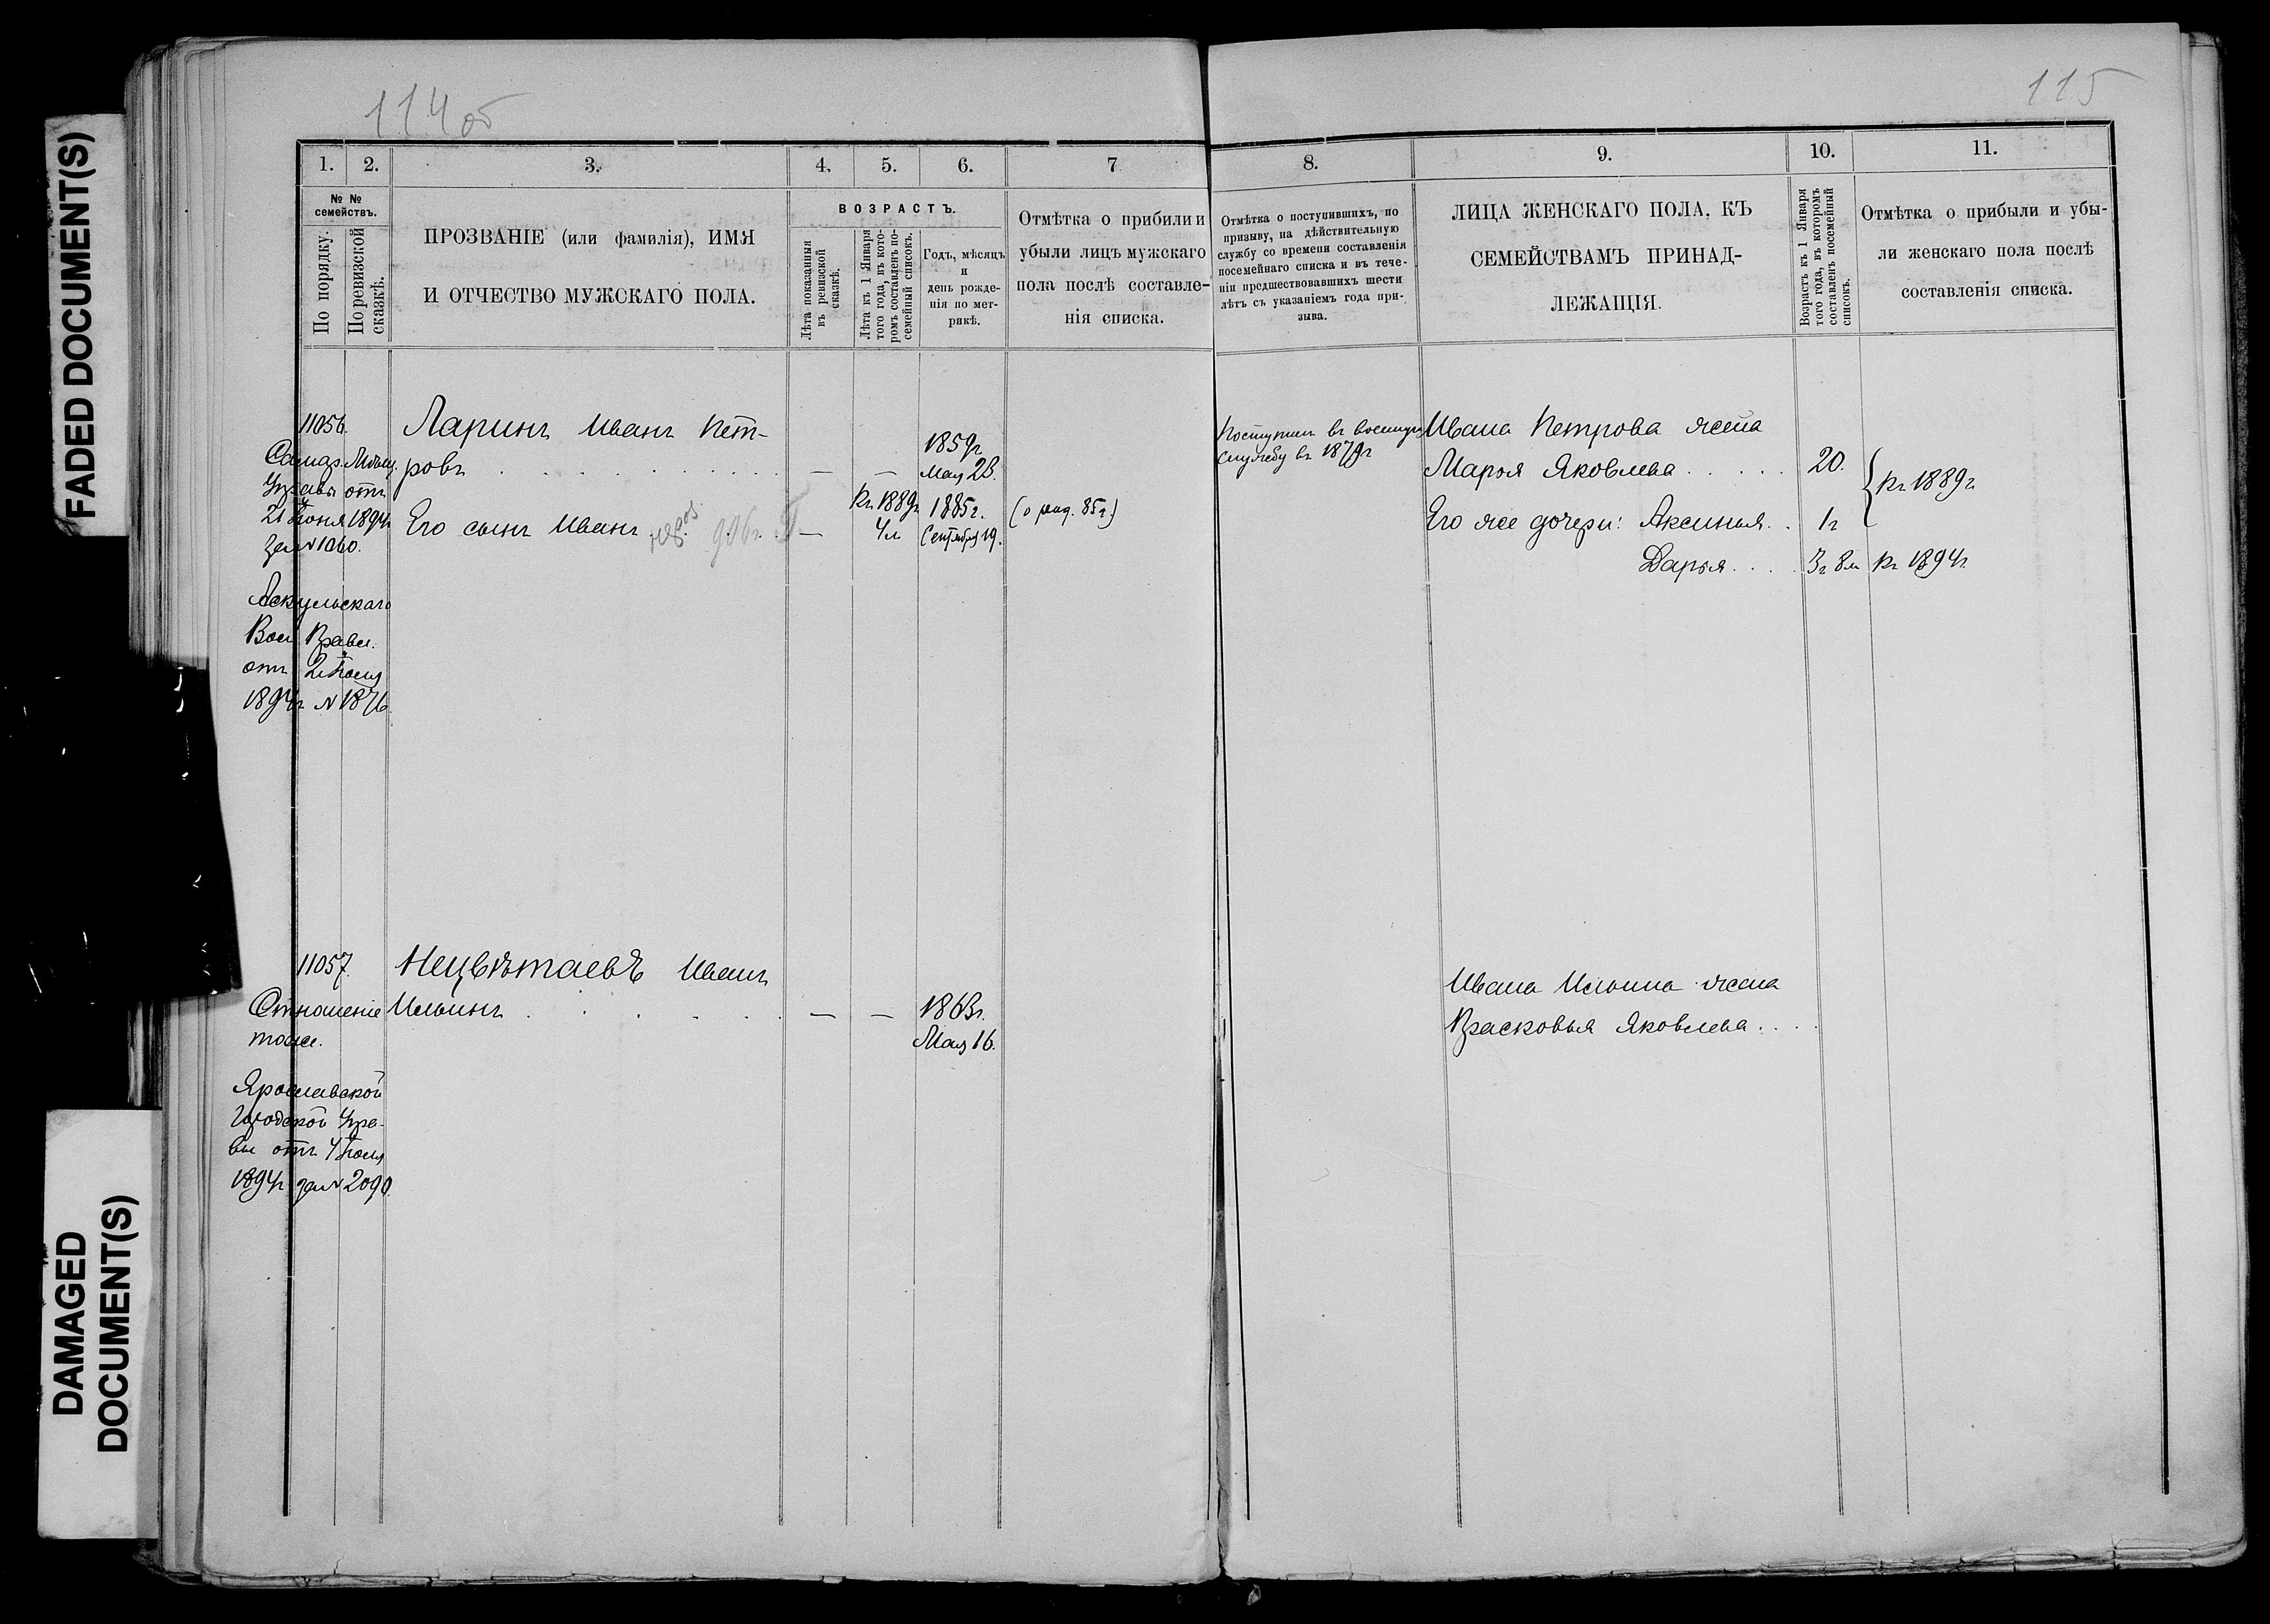 FADED DOCUMENT(S)
DAMAGED
DOCUMENT(S)
114 об
115
1.
2.
3.
4.
5.
6.
7
8.
9.
10.
11.
№ №
семействъ.
По порядку.
По ревизской
сказкѣ.
ПРОЗВАНІЕ (или фамилія), ИМЯ
И ОТЧЕСТВО МУЖСКАГО ПОЛА.
ВОЗРАСТЪ.
Лѣта показанныя
въ ревизской
сказкѣ.
Лѣта къ 1 Января
того года, въ кото-
ромъ составленъ по-
семейный списокъ.
Годъ, мѣсяцъ
и
день рожде-
нія по мет-
рикѣ.
Отмѣтка о прибыли и
убыли лицъ мужскаго
пола послѣ составле-
нія списка.
Отмѣтка о поступившихъ, по
призыву, на дѣйствительную
службу со времени составленія
посемейнаго списка и въ тече-
ніи предшествовавшихъ шести
лѣтъ съ указаніемъ года при-
зыва.
ЛИЦА ЖЕНСКАГО ПОЛА, КЪ
СЕМЕЙСТВАМЪ ПРИНАД-
ЛЕЖАЩІЯ.
Возрастъ къ 1 Января
того года, въ которомъ
составленъ посемейный
списокъ.
Отмѣтка о прибыли и убы-
ли женскаго пола послѣ
составленія списка.
11056.
Самар. Мѣщ.
Управы отъ
21 Іюня 1894г
за № 1060.
Аскульскаго
Вол. Правл.
отъ 2 Іюля
1894г № 1876
Ларинъ Иванъ Пет-
ровъ . . . . . . . — —
1859г
Мая 23.
Его сынъ Иванъ . . . —
къ 1889г
4л
1885г.
Сентября 19.
(о рожд. 85г.)
Поступилъ въ военную
службу въ 1879г
Ивана Петрова жена
Марья Яковлева . . . . . 20.
Его же дочери: Аксинья. . 1г
къ 1889г
Дарья . . . . 3г 8м къ 1894г.
11057.
Отношеніе
тоже.
Ярославской
Городской Упра-
вы отъ 4 Іюля
1894г за № 2090.
Нецвѣтаевъ Иванъ
Ильинъ . . . . . . — —
1863г.
Мая 16.
Ивана Ильина жена
Прасковья Яковлева . . . .